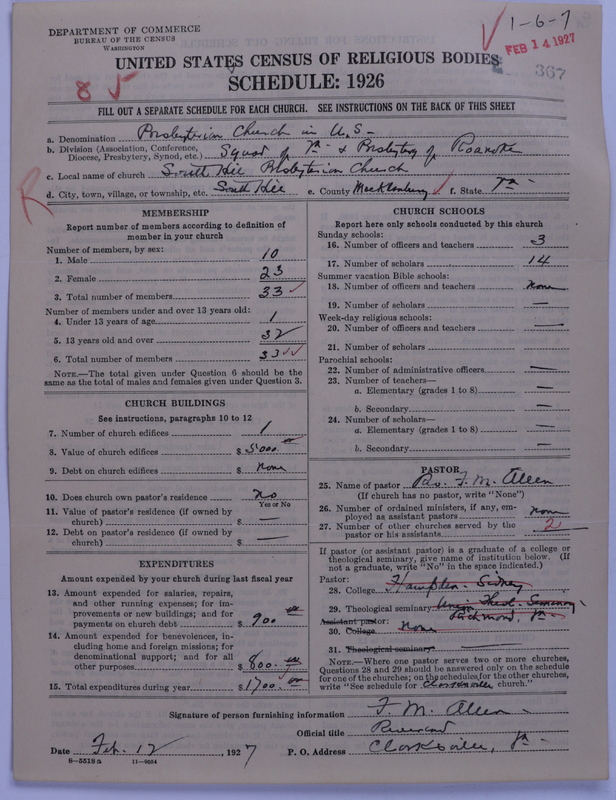 DEPARTMENT OF COMMERCE
BUREAU OF THE CENSUS
WASHINGTON
1-6-7
FEB 14 1927
367
UNITED STATES CENSUS OF RELIGIOUS BODIES
SCHEDULE: 1926
8
FILL OUT A SEPARATE SCHEDULE FOR EACH CHURCH. SEE INSTRUCTIONS ON THE BACK OF THIS SHEET
a. Denomination Presbyterian Church in U.S-
b. Division (Association, Conference, Diocese, Presbytery, Synod, etc.) Synod of Va- & Presbytery of Roanoke
c. Local name of church South Hill Presbyterian Church
d. City, town, village, or township, etc. South Hill e. County Mecklenburg f. State Va-
R
MEMBERSHIP
Report number of members according to definition of member in your church
Number of members, by sex:
1. Male 10
2. Female 23
3. Total number of members 33
Number of members under and over 13 years old:
4. Under 13 years of age 1
5. 13 years old and over 32
6. Total number of members 33
NOTE.—The total given under Question 6 should be the same as the total of males and females given under Question 3.
CHURCH BUILDINGS
See instructions, paragraphs 10 to 12
7. Number of church edifices 1
8. Value of church edifices $ 5000
9. Debt on church edifices $ none
10. Does church own pastor's residence No
Yes or No
11. Value of pastor's residence (if owned by church) $ —
12. Debt on pastor's residence (if owned by church) $ —
EXPENDITURES
Amount expended by your church during last fiscal year
13. Amount expended for salaries, repairs, and other running expenses; for improvements or new buildings; and for payments on church debt $ 900
14. Amount expended for benevolences, including home and foreign missions; for denominational support; and for all other purposes $ 800
15. Total expenditures during year $ 1700
CHURCH SCHOOLS
Report here only schools conducted by this church
Sunday schools:
16. Number of officers and teachers 3
17. Number of scholars 14
Summer vacation Bible schools:
18. Number of officers and teachers none
19. Number of scholars —
Week-day religious schools:
20. Number of officers and teachers —
21. Number of scholars
Parochial schools:
22. Number of administrative officers —
23. Number of teachers—
a. Elementary (grades 1 to 8) —
b. Secondary —
24. Number of scholars—
a. Elementary (grades 1 to 8) —
b. Secondary —
PASTOR
25. Name of pastor Rev. F. M. Allen
(If church has no pastor, write "None")
26. Number of ordained ministers, if any, employed as assistant pastors none
27. Number of other churches served by the pastor or his assistants 2
If pastor (or assistant pastor) is a graduate of a college or theological seminary, give name of institution below. (If not a graduate, write "No" in the space indicated.)
Pastor:
28. College Hampden-Sidney
29. Theological seminary Union Theol. Seminary Richmond, Va-
Assistant pastor:
30. College None
31. Theological seminary
NOTE.—Where one pastor serves two or more churches, Questions 28 and 29 should be answered only on the schedule for one of the churches; on the schedules for the other churches, write "See schedule for Clarksville church."
Signature of person furnishing information F. M. Allen
Official title Reverend
Date Feb. 12, 1927 P. O. Address Clarksville, Va-
8—5518 a 11—9054